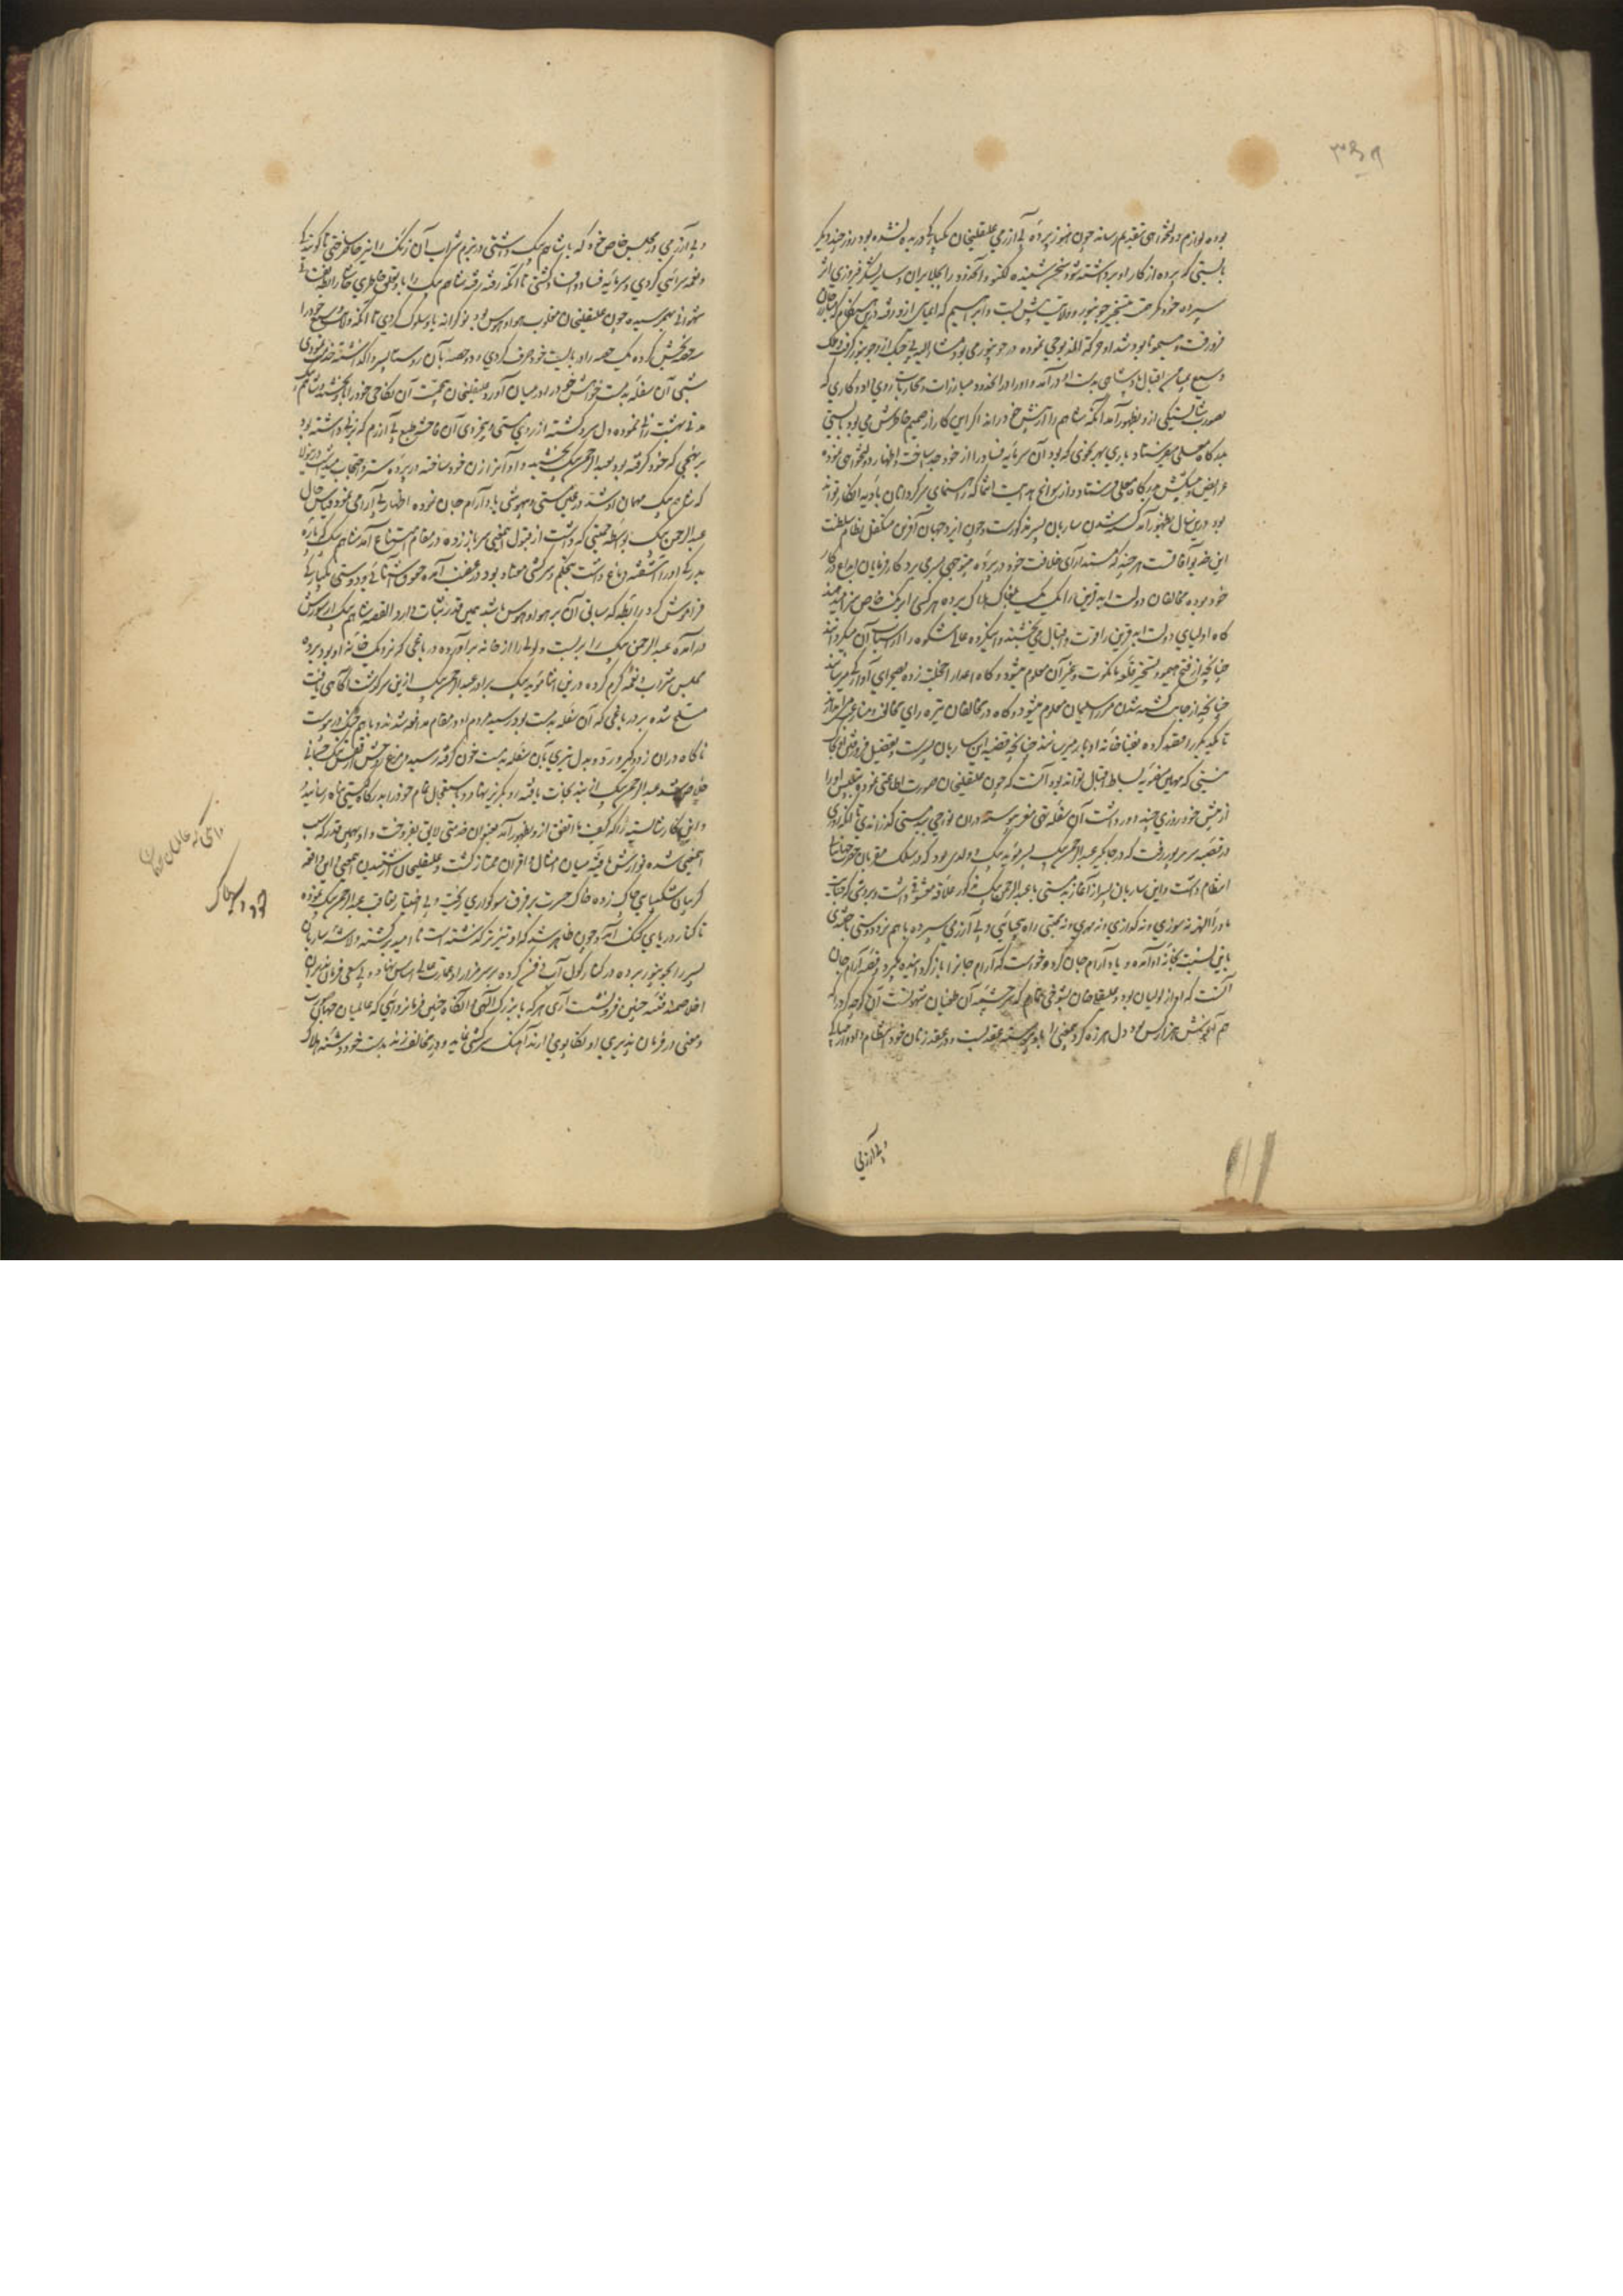 بوده لوازم دولتخواهی بتقدیم رساند چون هنوز پرده بی آزرمی علیقلیخان یکبارگی دریده نشده بود روزی چند دیگر
بایستی که پرده از کار او برداشته شود سخن شنیده لکنو و آنحدود را بجلایران و سایر لشکر فیروزی اثر
سپرده خود
فرو رفت و سمی او بود شد او حرکة المذبوحی نموده در جونپور می بود مشارالیه بی جنگ ازو جونپور گرفت و ملک
وسیع بمیامن اقبال پادشاهی بدست او درآمد و او را در آنحدود مبارزات و محاربات روی داد و کاری که
بصورت شایستگی ازو بظهور آمد آنکه شاهم را از پیش خود راند اگر این کار از صمیم خاطرش می بود بایستی
بدرگاه معلی می فرستاد باری بهر نحوی که بود آن سرمایه فساد را از خود جدا ساخت و اظهار دولتخواهی نموده
عرایض و پیشکش بدرگاه معلی فرستاد و از سوانح هدایت انتما که راهنمای سرگردانان بادیه انکار تواند
بود درین سال بظهور آمد کشته شدن ساربان پسر مذکورست و چون ایزد جهان آفرین متکفل نظام سلطنت
این خدیو آفاقست هر چند که مسند آرای خلافت خود در پرده بی توجهی بسر می برد کارفرمایان ابداع در کار
خود بوده مخالفان دولت ابد قرین را یک یک بمغاک هلاک برده هر کسی را برنگ خاص سزا میدهند
گاه اولیای دولت ابد قرین را قوت و اقبال می بخشند و این گروه عالی شکوه را از اسباب آن میگردانند
چنانچه از فتح هیمو و تسخیر قلعه مانکوت و غیر آن معلوم میشود و گاه اعدا را خجلت زده بصحرای آوارگی سر میدهند
چنانچه از جاس کشته شدن مرزا سلیمان معلوم میشود و گاه در مخالفان تیره رای مخالف و منازعت انداخته
تا یکدیگر را مقید کرده بفنا خانه ادبار میرسانند چنانچه قضیه این ساربان پسرست و تفصیل فرو رفتن
نشینی که مهابین سفره بساط اقبال تواند بود آنست که چون علیقلیخان صورت اطاعتی نمود و بتلبیس او را
از پیش خود روزی چند دور داشت آن سفله تهی مغز پیوسته دران نواحی بدمستی گذرانندی تا آنکه روزی
در قصبه سرهرپور رفت که در جاگیر عبدالرحمن بیگ پسر موید بیگ دولدی بود که در سلک مقربان حضرت جهانبانی
انتظام داشت و این ساربان پسر از آغاز بدمستی با عبدالرحمن بیگ مذکور علاقه معشوقی داشت و بروشی که رجالهٔ
ماوراءالنهر نه سوزی و نه گدازی و نه مهری و نه محبتی راه بیحیائی و بی آزرمی سپرده باهم نرد دوستی باختندی
باین نسبت بخانه او آمده و یاد آرام جان کرد و خواست که آرام جان را باز کرداننده بگیرد و قصه آرام جان
آنست که او از لولیان بود و علیقلیخان بشوخی تمام که سرچشمه آن طغیان شهوتست آن کوچه گرد را که
هم آغوش هزار کس بود دل هرزه گرد بعضی را بدو پیوسته بعقد بست و در عقد زنان خود انتظام داد و از بیحیائی
و بی آزرمی
و بی آزرمی در مجلس خاص خود که با شاهم بیگ داشتی در بزم شراب آن زنگ را نیز حاضر ساختی تا گویندگی
و نغمه سرائی کردی و سرمایه فساد و افساد گشتی تا آنکه رفته رفته شاهم بیگ را باو تعلق خاطری خاص رابطهٔ الفت
شهوانی بهم رسید چون علیقلیخان مغلوب هوا و هوس بود نوکرانه باو سلوک کردی تا آنکه ولایت وسیع خود را
سه بخش کرده یک حصه را در بایست خود صرف کردی و دو حصه بآن دو ساربان پسر واگذاشته خدمت نمودی
شبی آن سفله بدمست خواهش خود را در میان آورد و علیقلیخان بحمیت آن نکاحی خود را باو بخشید و شاهم بیگ
مدتی شهوت رانی نموده دل سرد گشته از روی مستی و بیخردی آن فاحشه طبع بی آزرم که زنی داشته بود
بر نهجی که خود گرفته بود بعبدالرحمن بیگ بخشید و او آنرا زن خود ساخته در پرده ستر و حجاب میداشت درینولا
که شاهم بیگ مهمان او شد در عین مستی و بیهوشی یاد آرام جان نموده اظهار بی آرامی نمود و پیش حال
عبدالرحمن بیگ بواسطه حمیتی که داشت از قبول این معنی سر باز زده در مقام امتناع آمد شاهم بیگ که باره
بدرگی او را آشفته دماغ داشت بتحکم و سرکشی معتاد بود در غضب آمده حقوق آشنائی و دوستی یکبارگی
فراموش کرد رابطه که مبانی آن بر هوا و هوس باشد همین قدر ثبات دارد القصه شاهم بیگ از شورش
درآمده عبدالرحمن بیگ را بربست و لولی را از خانه برآورده در باغی که نزدیک خانه او بود برده
مجلس شراب و نغمه گرم کرده درین اثنا موید بیگ برادر عبدالرحمن بیگ ازین سرگذشت آگاهی یافت
مسلح شده بر در باغی که آن سفله بدمست بود رسید مردم او در مقام مدافعه شدند و باهم جنگ در پیوست
ناگاه دران زد و گیر ورد و بدل تیری بآن سفله بدمست خون گرفته رسید و مرغ روحش از قفس تنگ جسمانی
خلاص شد عبدالرحمن بیگ از بند نجات یافته رو بگریز نهاد و باستعجال تمام خود را بدرگاه گیتی پناه رسانید
و این کار شایسته را که کیف ما اتفق ازو بظهور آمد بعنوان خدمتی لایق بفروخت و او بهمین قدر که سبب
اینمعنی شده نوازش یافته میان امثال و اقران ممتاز گشت و علیقلیخان از شنیدن اینچنین واقعه
گریبان شکیبائی چاک زده خاک حسرت بر فرق سوگواری ریخت و بی اختیار بتعاقب عبدالرحمن بیگ نموده
تا کنار دریای گنگ آمد و چون ظاهر شد که او تیزتر گذشته است ناامید برگشته و لاشه ساربان
پسر را بجونپور برده در کنار کول آبی دفن کرده بر سر مزار او عمارت عالی اساس نهاد و بی سعی فرمان پذیران
اخلاصمند فتنه چنین فرو نشست آری هر که با بزرگ الهی آنگاه چنین فرمانروائی که عالمیان جهان صورت
و معنی در فرمان پذیری او تکاپوی دارند آهنگ سرکشی نماید و در مخالفت زند بدست خود دشنه هلاک